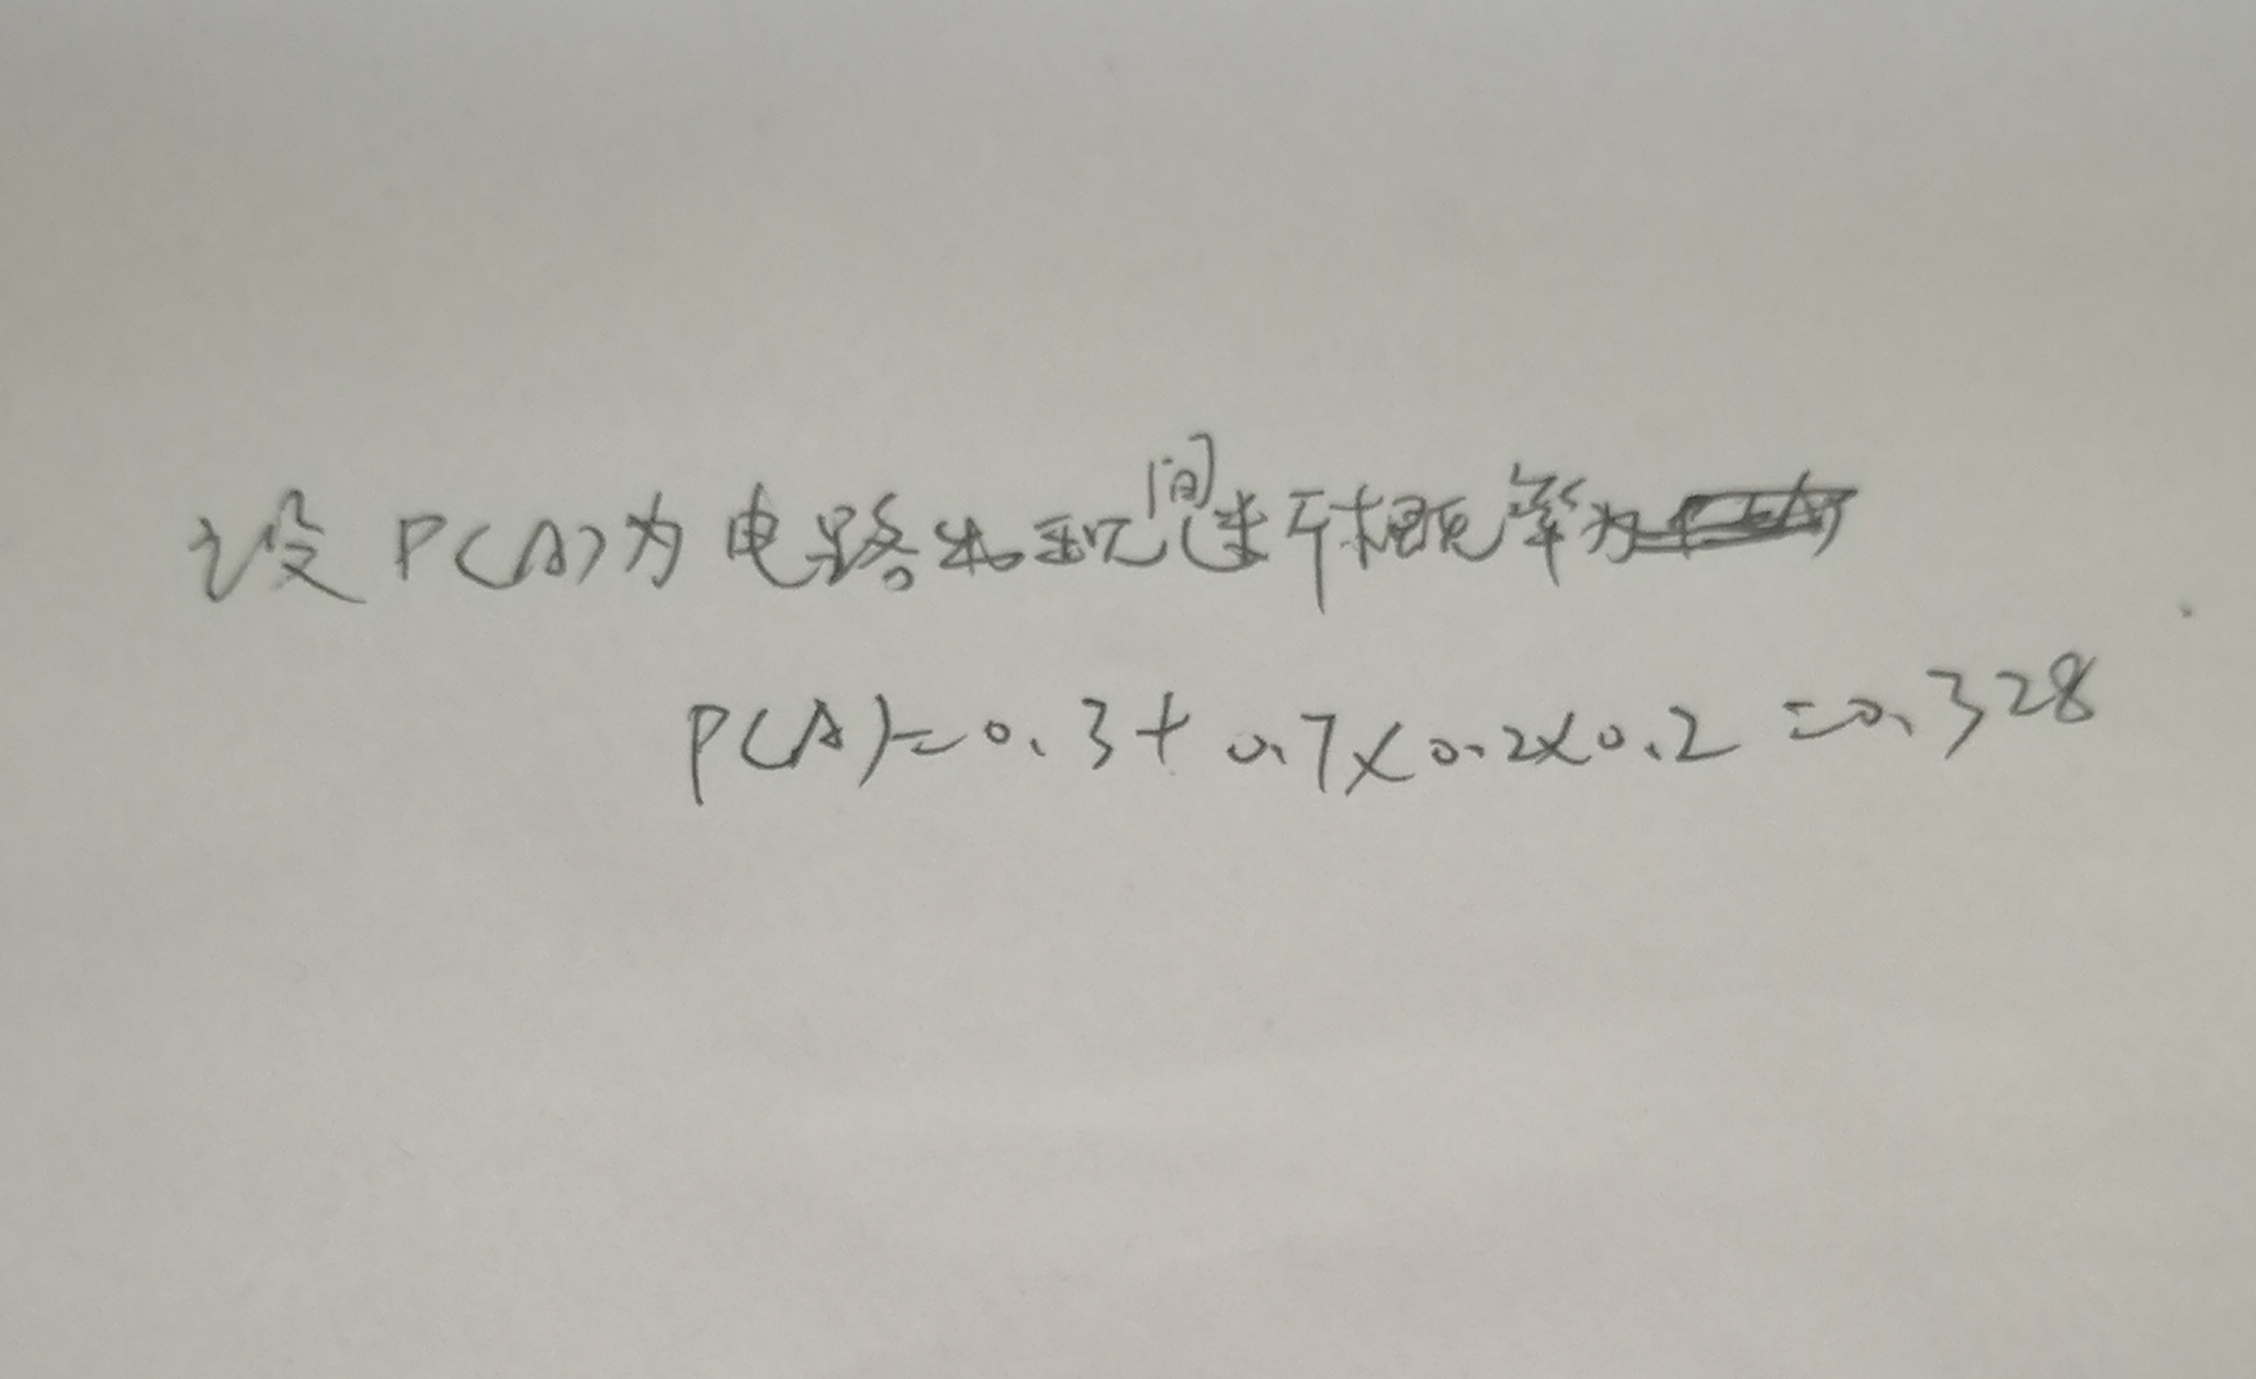 设P(A)为电路出现间断概率为
P(A)=0.3+0.7×0.2×0.2=0.328